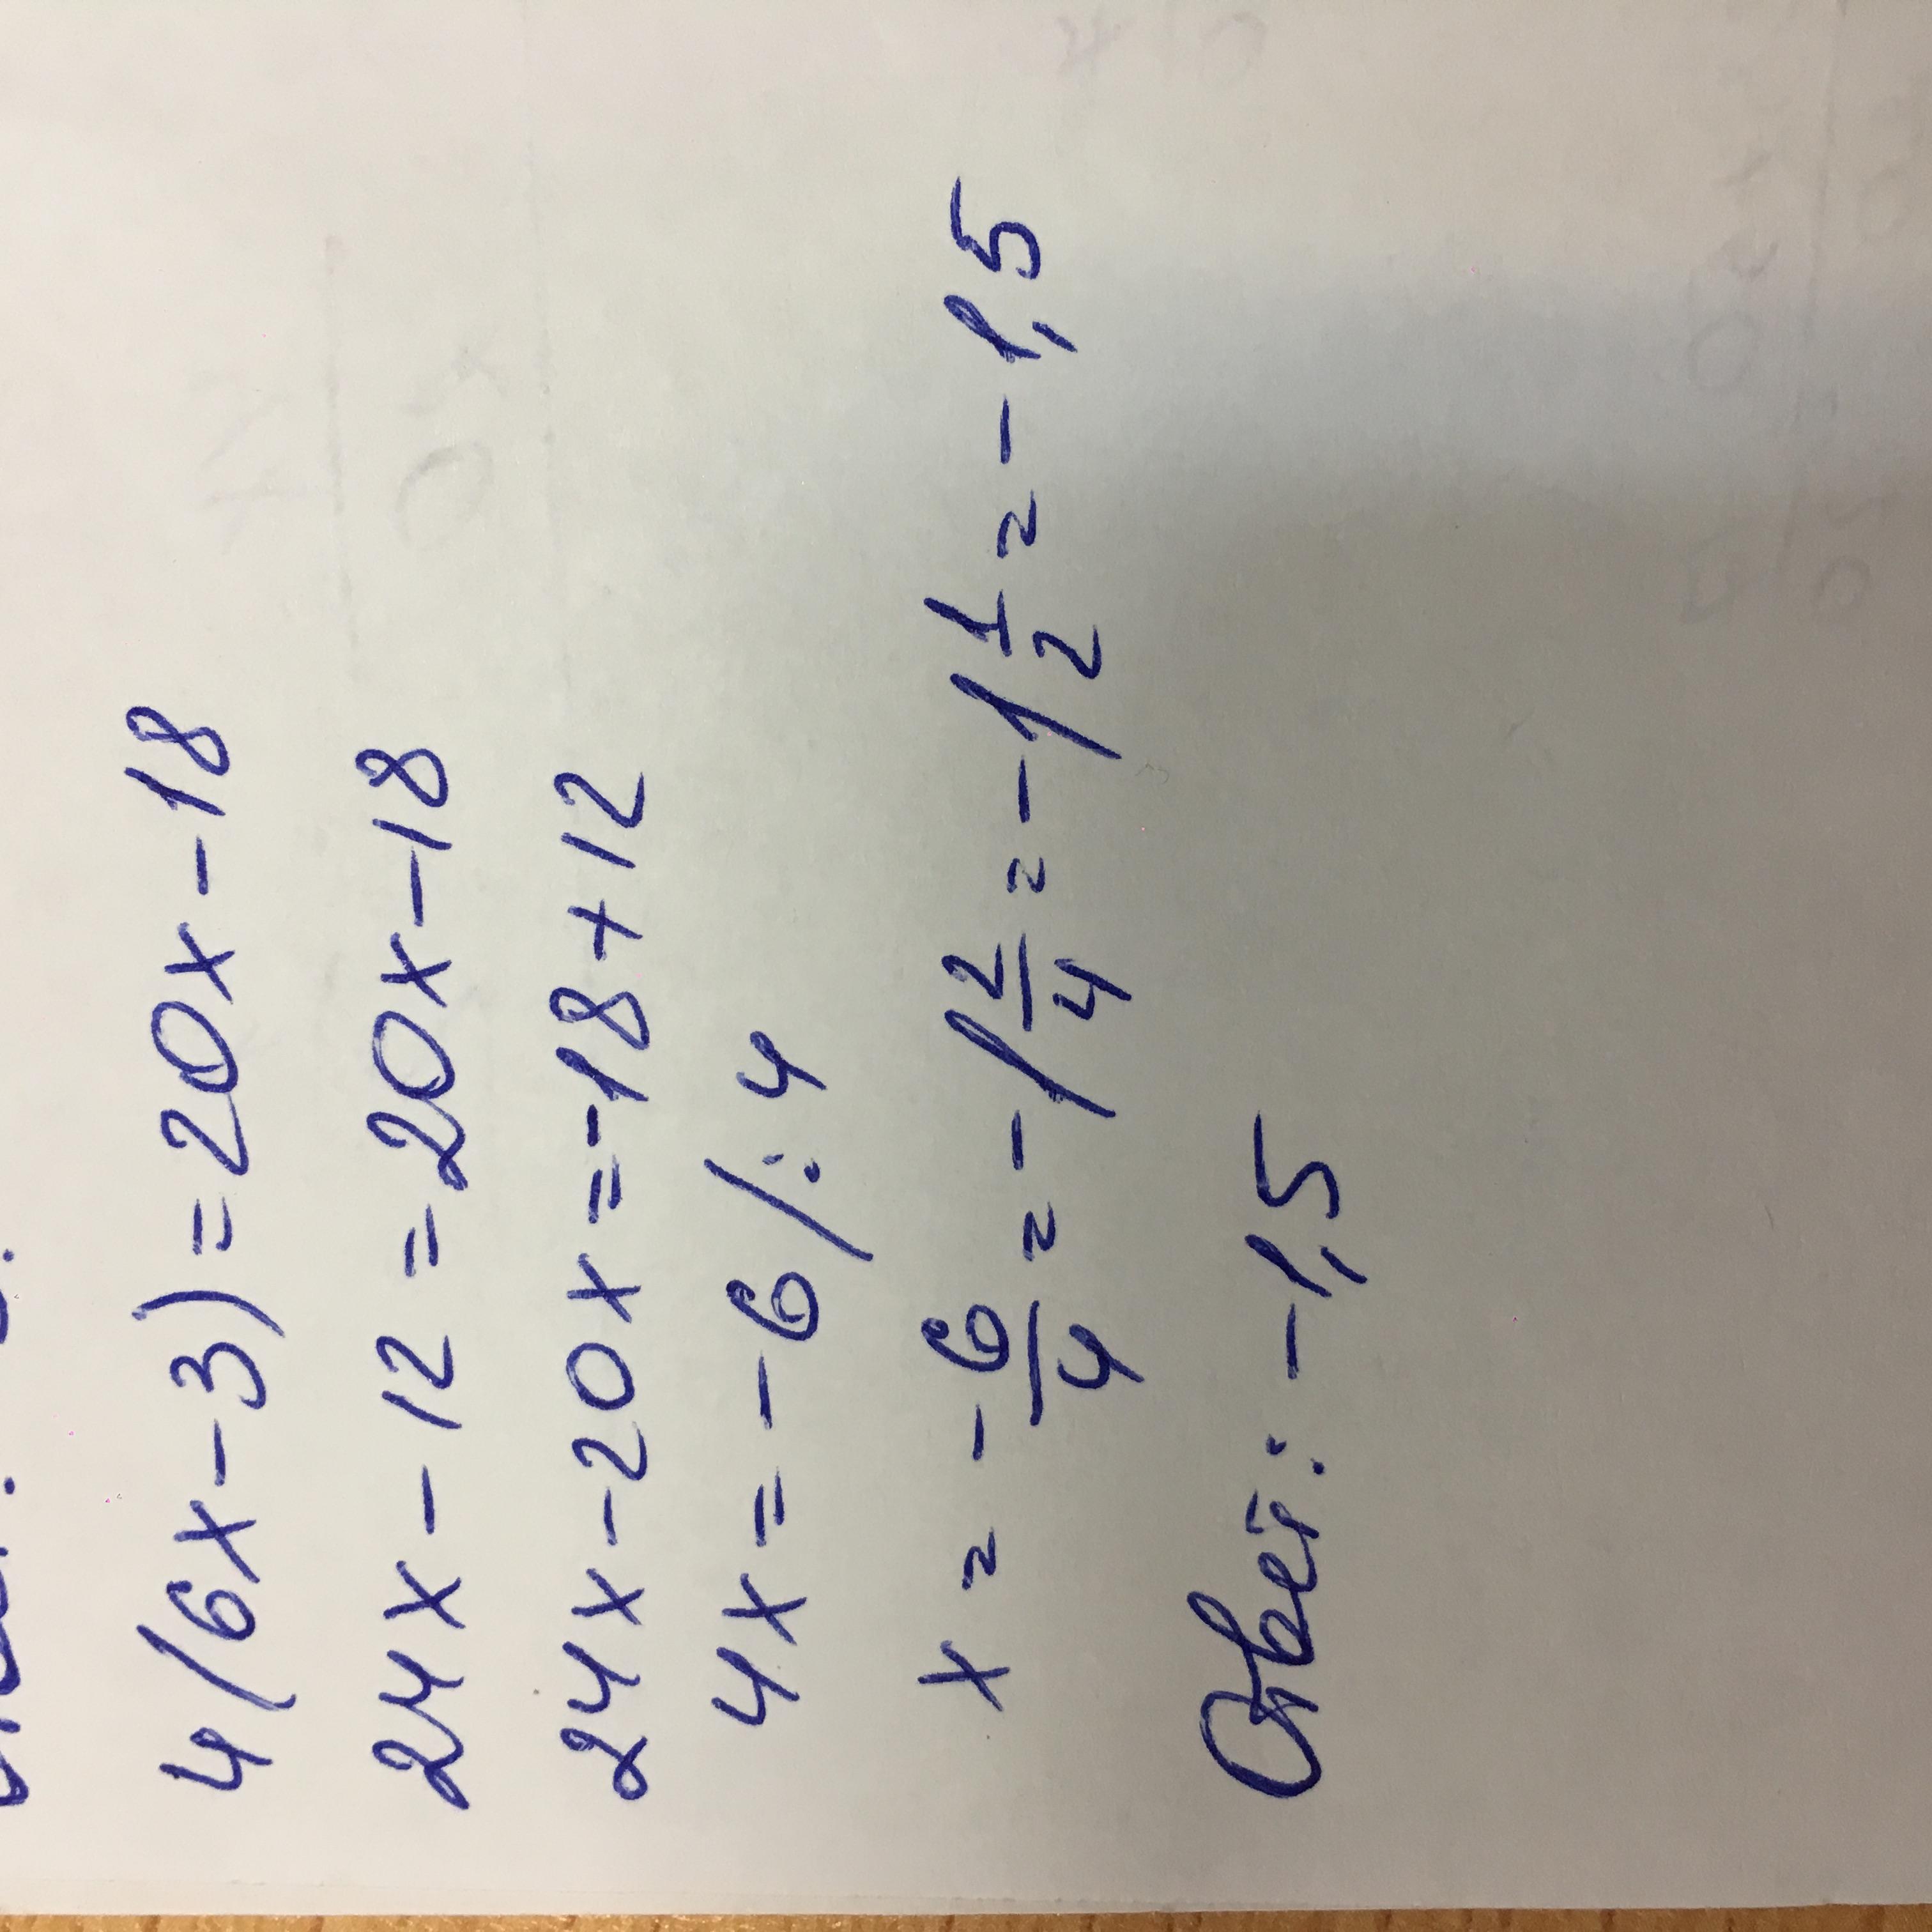 4(6x-3)=20x-18
24x-12=20x-18
24x-20x=-18+12
4x=-6/:4
x=-6/4=-1 2/4=-1 1/2=-1,5
Ответ: -1,5